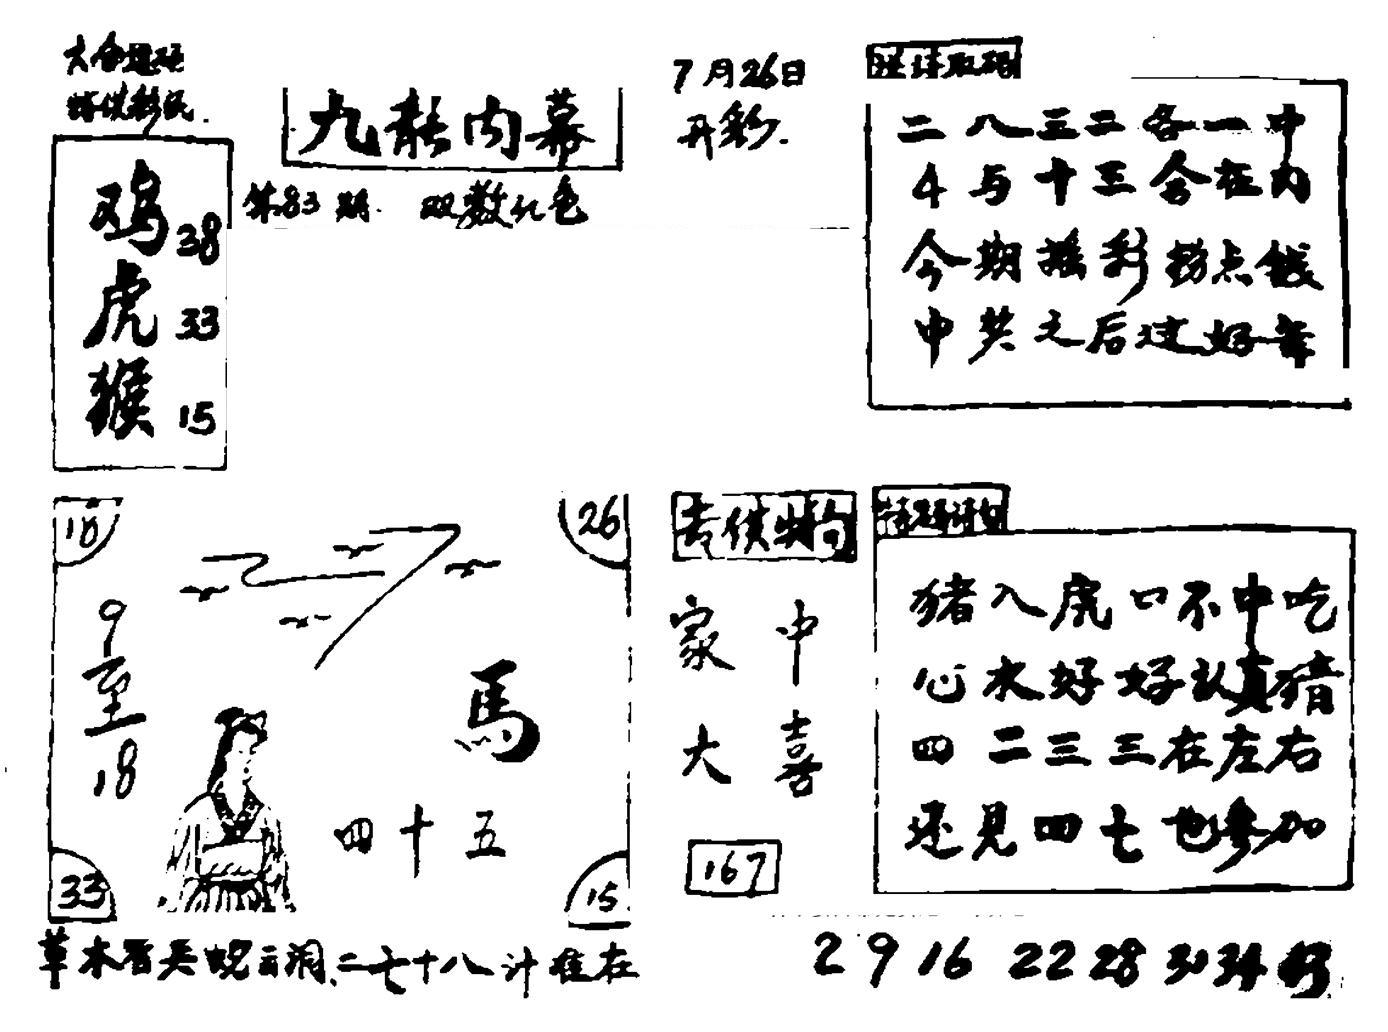 7月26日
开彩.
九龙内幕
第83期. 双数红色
鸡 38
虎 33
猴 15
二八三二各一中
4与十三会在内
今期摇彩揚点钱
中奖之后过好年
18
26
9至18
馬
四十五
33
15
专供
家中
大喜
167
猪入虎口不中吃
心水好好认真猜
四二三三在左右
还见四七也参加
草木 二七十八 在
2 9 16 22 28 30 34